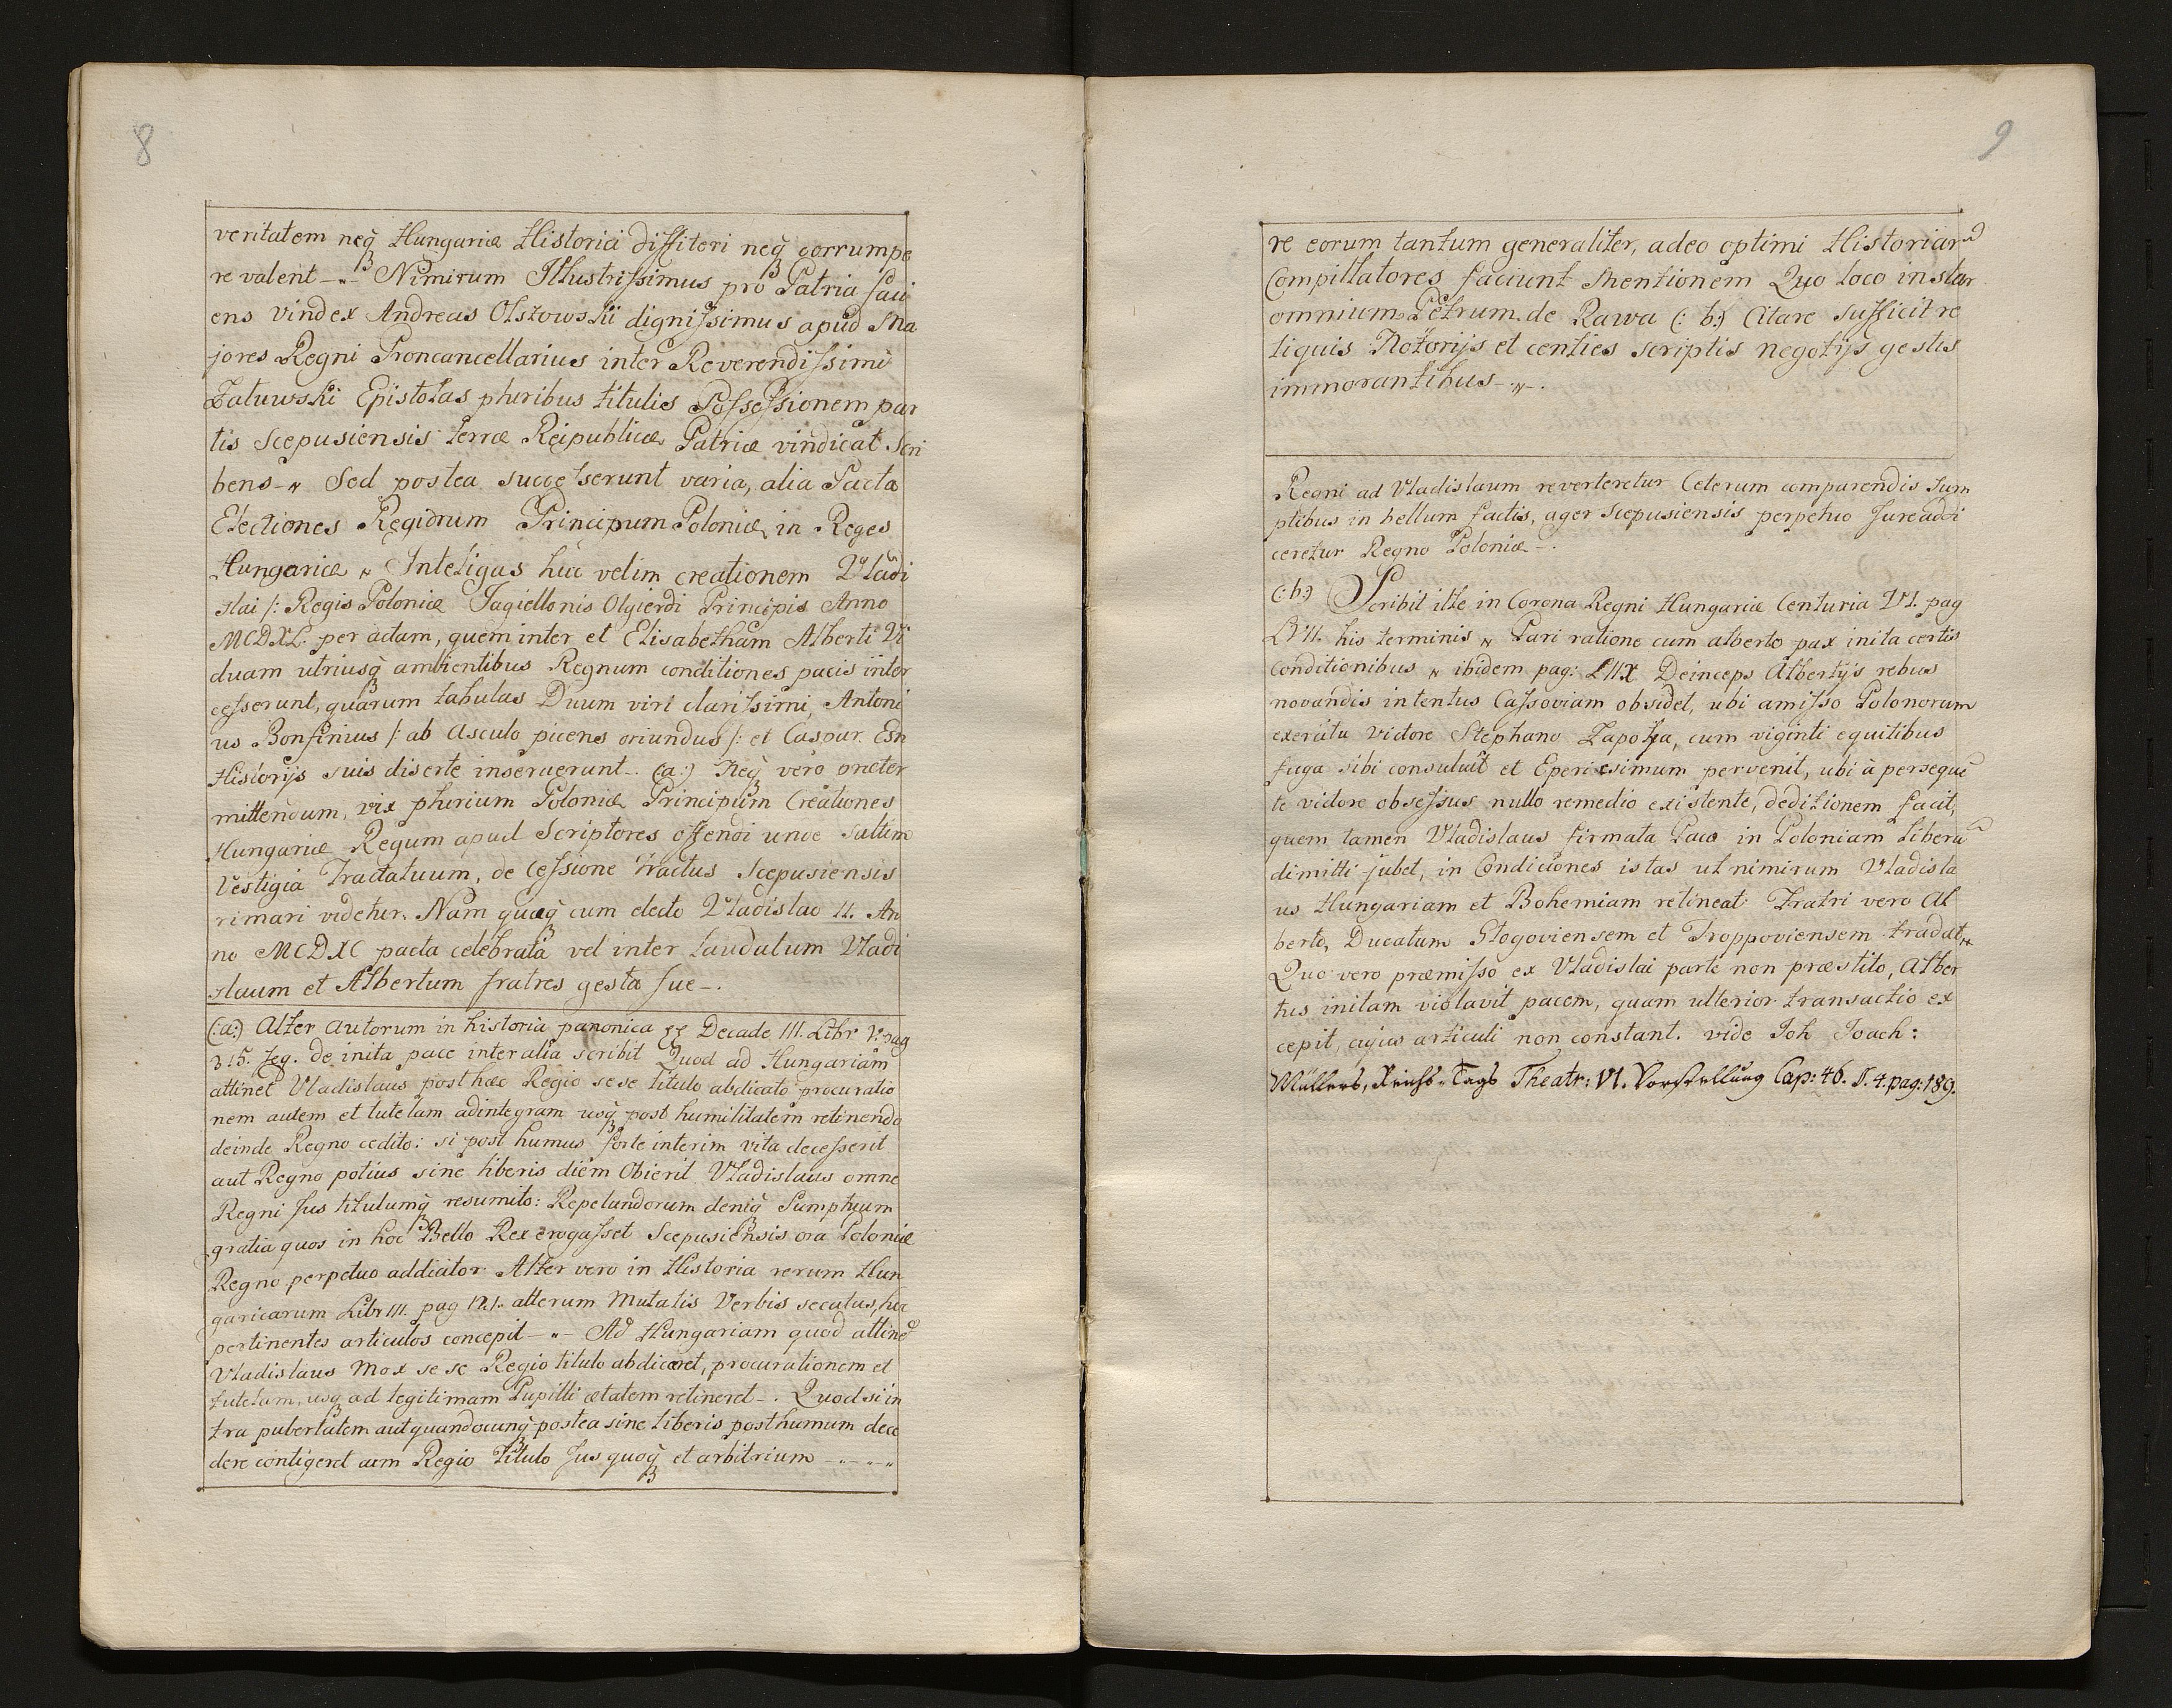 8
veritatem neq̃ Hungariæ Historici diffiteri neq̃ corrumpe
re valent -„- Nimirum Illustrissimus pro Patria faci
ens vindex Andreas Olszowskii dignissimus apud Ma
jores Regni Proncancellarius inter Reverendissimi
Zaluwski Epistolas pluribus titulis Possessionem par
tis Scepusiensis terræ Reipublicæ Patriæ vindicat Scri
bens -„ Sed postea successerunt varia, alia Pacta
Electiones Regidrum Principum Poloniæ, in Reges
Hungariæ „ Inteligas huc velim creationem Vladi
slai /: Regis Poloniæ Jagiellonis Olgierdi Principis Anno
MCDXL. per actam, quem inter et Elisabetham Alberti Vi
duam utriusq̃ ambientibus Regnum conditiones pacis inter
cesserunt, quarum tabulas Duum viri clarissimi, Antoni
us Bonfinius /: ab Asculo picens oriundus /: et Caspur Esn
Historijs suis diserte inseruerunt -. (:a:) Neq̃ vero præter
mittendum, vix plurium Poloniæ Principum Creationes
Hungariæ Regum apud Scriptores offendi unde Saltem
Vestigia Tractatuum, de Cessione Tractus Scepusiensis
rimari videtur. Nam quæq̃ cum electo Vladislao II. An
no MCDXC pacta celebrata vel inter laudatum Vladi
slaum et Albertum fratres gesta fue -.
(:a:) Alter Autorum in historia panonica Decade III. Libr V. pag
315. seq. de inita pace inter alia scribit Quod ad Hungariam
attinet Vladislaus post hæc Regio sese titulo abdicato procuratio
nem autem et tutelam adintegram usq̃ post humilitatem retinendo
deinde Regno cedito: si post humus forte interim vita decesserit
aut Regno potius sine liberis diem Obierit Vladislaus omne
Regni Jus titulumq̃ resumito: Repetundorum deniq̃ Sumptuum
gratia quos in hoc Bello Rex erogasset Scepusiensis ora Poloniæ
Regno perpetuo addicitor Alter vero in Historia rerum Hun
garicarum Libr III. pag 121. alterum Mutatis Verbis secutus, huc
pertinentes articulos concepit -„- Ad Hungariam quod attinet
Vladislaus Mox se se Regio titulo abdicaret, procurationem et
tutelam, usq̃ ad legitimam Pupilli ætatem retineret -. Quod si in
tra pubertatem aut quandocunq̃ postea sine liberis posthumum dece
dere contigeret cum Regio Titulo Jus quoq̃ et arbitrium -„-„-„
9
re eorum tantum generaliter, adeo optimi Historiarũ
Compillatores faciunt Mentionem Quo loco instar
omnium Petrum de Rawa (: b:) Citare Sufficit re
liquis Notorijs et centies scriptis negotijs gestis
immorantibus -„-.
Regni ad Vladislaum reverteretur Ceterum comparendis Sum
ptibus in bellum factis, ager Scepusiensis perpetuo Jure addi
ceretur Regno Poloniæ -.
(:b:) Scribit ille in Corona Regni Hungariæ Centuria VI. pag
LVII. his terminis „ Pari ratione cum alberto pax inita certis
Conditionibus „ ibidem pag: LIIX Deinceps Albertys rebus
novandis intentus Cassoviam obsidet, ubi amisso Polonorum
exercitu victore Stephano Zapolya, cum viginti equitibus
fuga sibi consuluit et Eperiesimum pervenit, ubi à persequẽ
te victore obsessus nullo remedio existente, deditionem facit,
quem tamen Vladislaus firmata Pace in Poloniam liberũ
dimitti jubet, in Condiciones istas ut nimirum Vladisla
us Hungariam et Bohemiam retineat Fratri vero Al
berto, Ducatum Glogoviensem et Troppoviensem tradat „
Quo vero præmisso ex Vladislai parte non præstito, Alber
tus initam violavit pacem, quam ulterior transactio ex
cepit, cujus articuli non constant. vide Joh Joach:
Müllers, Reichs-Tags Theatr: VI. Vorstellung Cap: 46. §. 4. pag: 189.